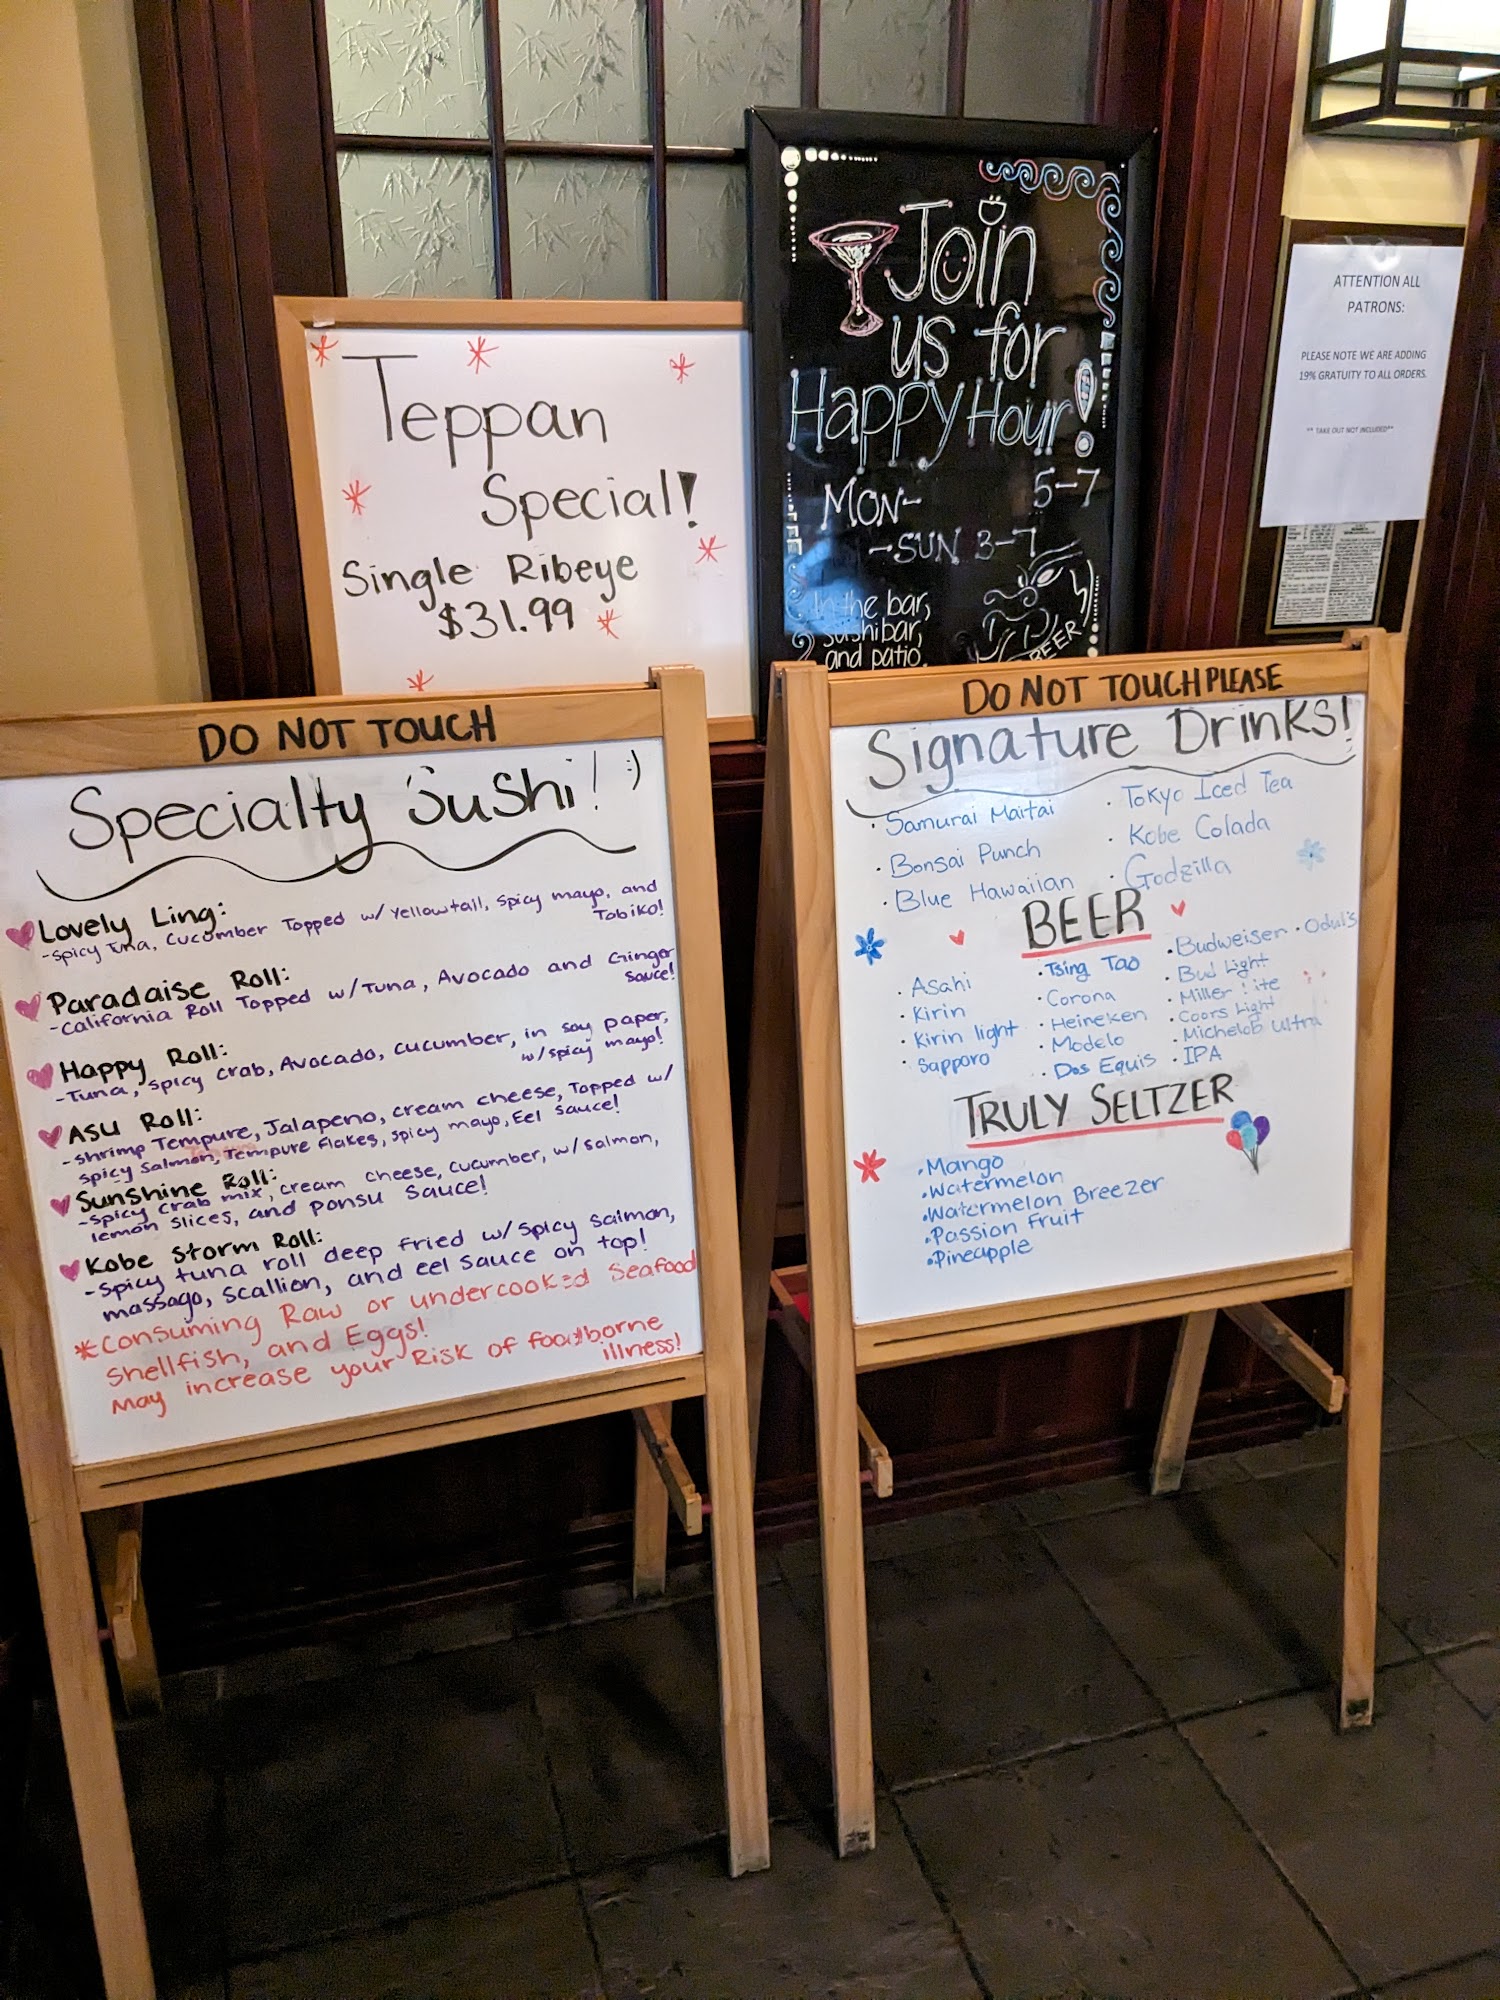 Teppan
Special!
Single Ribeye
$31.99
Join
us for
Happy Hour!
MON- 5-7
-SUN 3-7
In the bar,
sushi bar,
and patio.
BEER
ATTENTION ALL
PATRONS:
PLEASE NOTE WE ARE ADDING
19% GRATUITY TO ALL ORDERS.
** TAKE OUT NOT INCLUDED**
DO NOT TOUCH
Specialty Sushi! :)
Lovely Ling:
-Spicy Tuna, Cucumber Topped w/ Yellowtail, Spicy mayo, and
Tobiko!
Paradaise Roll:
-California Roll Topped w/ Tuna, Avocado and Ginger
sauce!
Happy Roll:
-Tuna, Spicy Crab, Avocado, cucumber, in soy paper,
w/ spicy mayo!
Asu Roll:
-Shrimp Tempure, Jalapeno, cream cheese, Topped w/
Spicy Salmon, Tempure Flakes, Spicy mayo, Eel Sauce!
Sunshine Roll:
-Spicy Crab mix, cream cheese, cucumber, w/ salmon,
lemon slices, and Ponsu Sauce!
Kobe Storm Roll:
-Spicy tuna roll deep fried w/ Spicy Salmon,
massago, scallion, and eel sauce on top!
*Consuming Raw or undercooked Seafood
Shellfish, and Eggs!
May increase your Risk of foodborne
illness!
DO NOT TOUCH PLEASE
Signature Drinks!
· Samurai Maitai
· Bonsai Punch
· Blue Hawaiian
· Tokyo Iced Tea
· Kobe Colada
· Godzilla
BEER
· Asahi
· Kirin
· Kirin light
· Sapporo
· Tsing Tao
· Corona
· Heineken
· Modelo
· Dos Equis
· Budweiser · Odul's
· Bud Light
· Miller Lite
· Coors Light
· Michelob Ultra
· IPA
TRULY SELTZER
· Mango
· Watermelon
· Watermelon Breezer
· Passion Fruit
· Pineapple